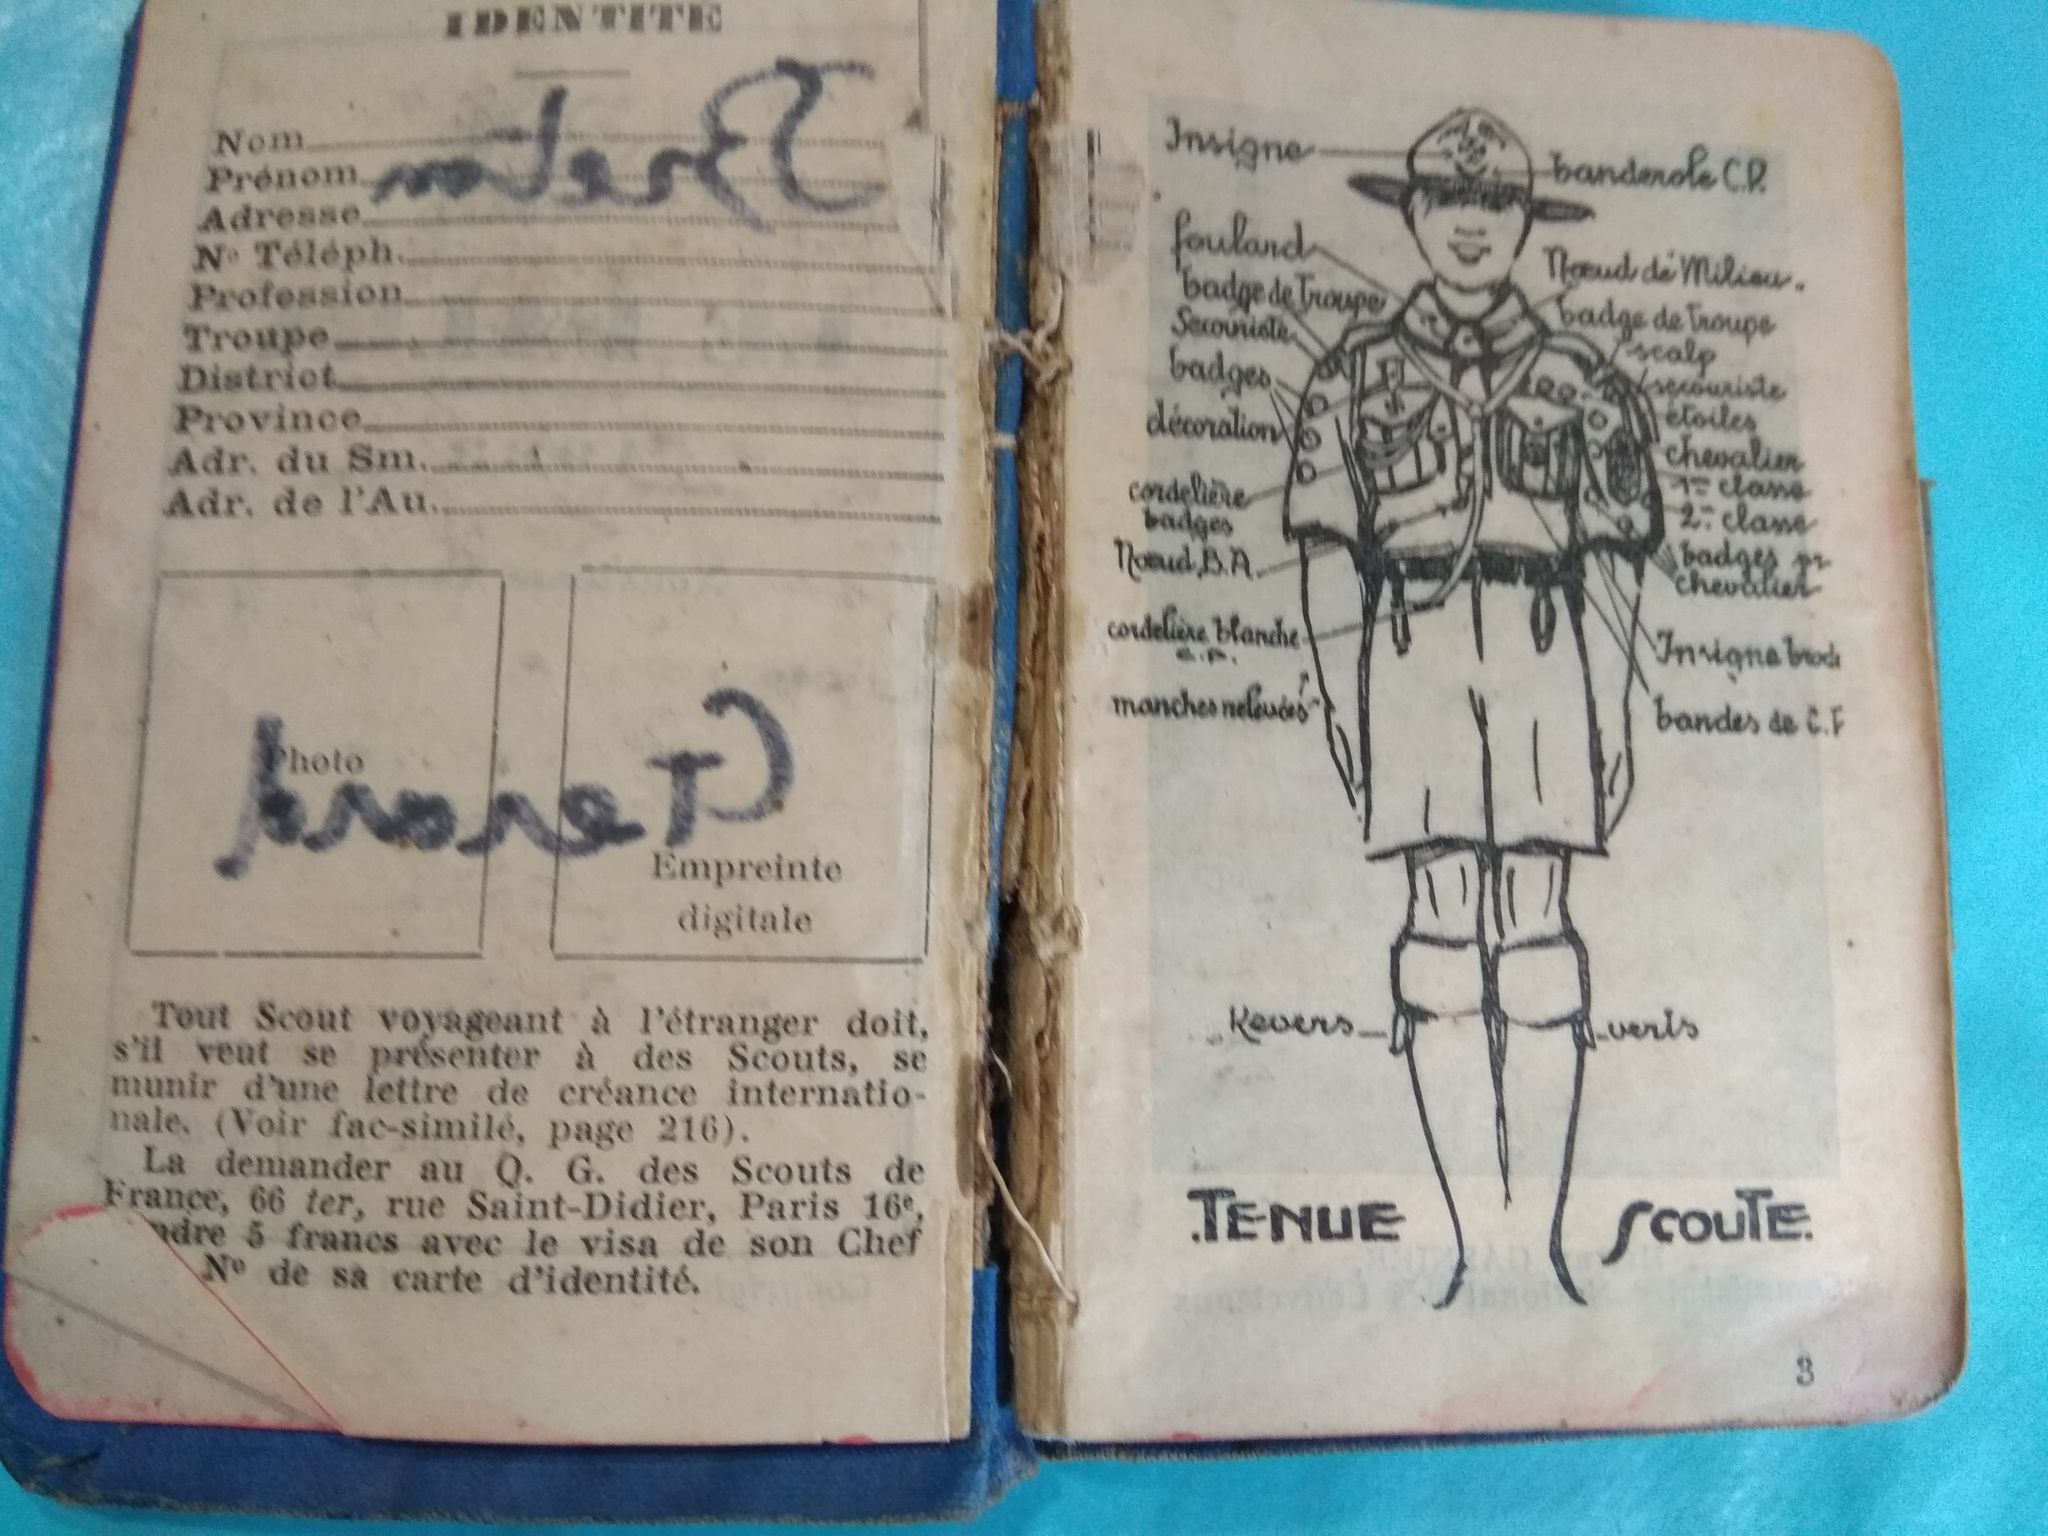 IDENTITE
Nom
Prénom
Adresse
No Téléph.
Profession
Troupe
District
Province
Adr. du Sm.
Adr. de l'Au.
Photo
Empreinte
digitale
Tout Scout voyageant à l'étranger doit,
s'il veut se présenter à des Scouts, se
munir d'une lettre de créance internatio-
nale. (Voir fac-similé, page 216).
La demander au Q. G. des Scouts de
France, 66 ter, rue Saint-Didier, Paris 16e,
ndre 5 francs avec le visa de son Chef
No de sa carte d'identité.
Insigne
banderole C.P.
foulard
badge de Troupe
Secouriste
badges
décoration
cordelière
badges
Nœud B.A.
cordelière blanche
C.P.
manches relevées
Nœud de Milieu.
badge de Troupe
scalp
secouriste
étoiles
chevalier
1re classe
2e classe
badges
chevalier
Insigne brod
bandes de C.P
Revers
verts
TENUE SCOUTE.
3